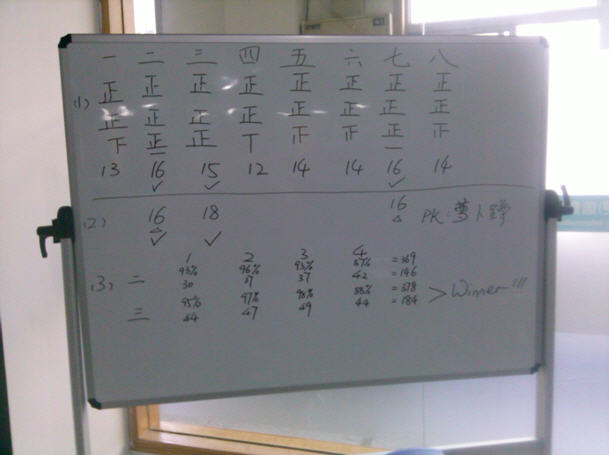 一 二 三 四 五 六 七 八
(1) 正 正 正 正 正 正 正 正
正 正 正 正 正 正 正 正
下 正 正 丅 正 一
一
13 16 15 12 14 14 16 14
✓ ✓ ✓
(2) 16 18 16 PK:萝卜蹲
△ △
✓ ✓
1 2 3 4
93% 96% 93% 87% =369
(3) 二 30 37 37 42 =146
95% 97% 98% 88% =378 > Winner!!!
三 44 47 49 44 =184